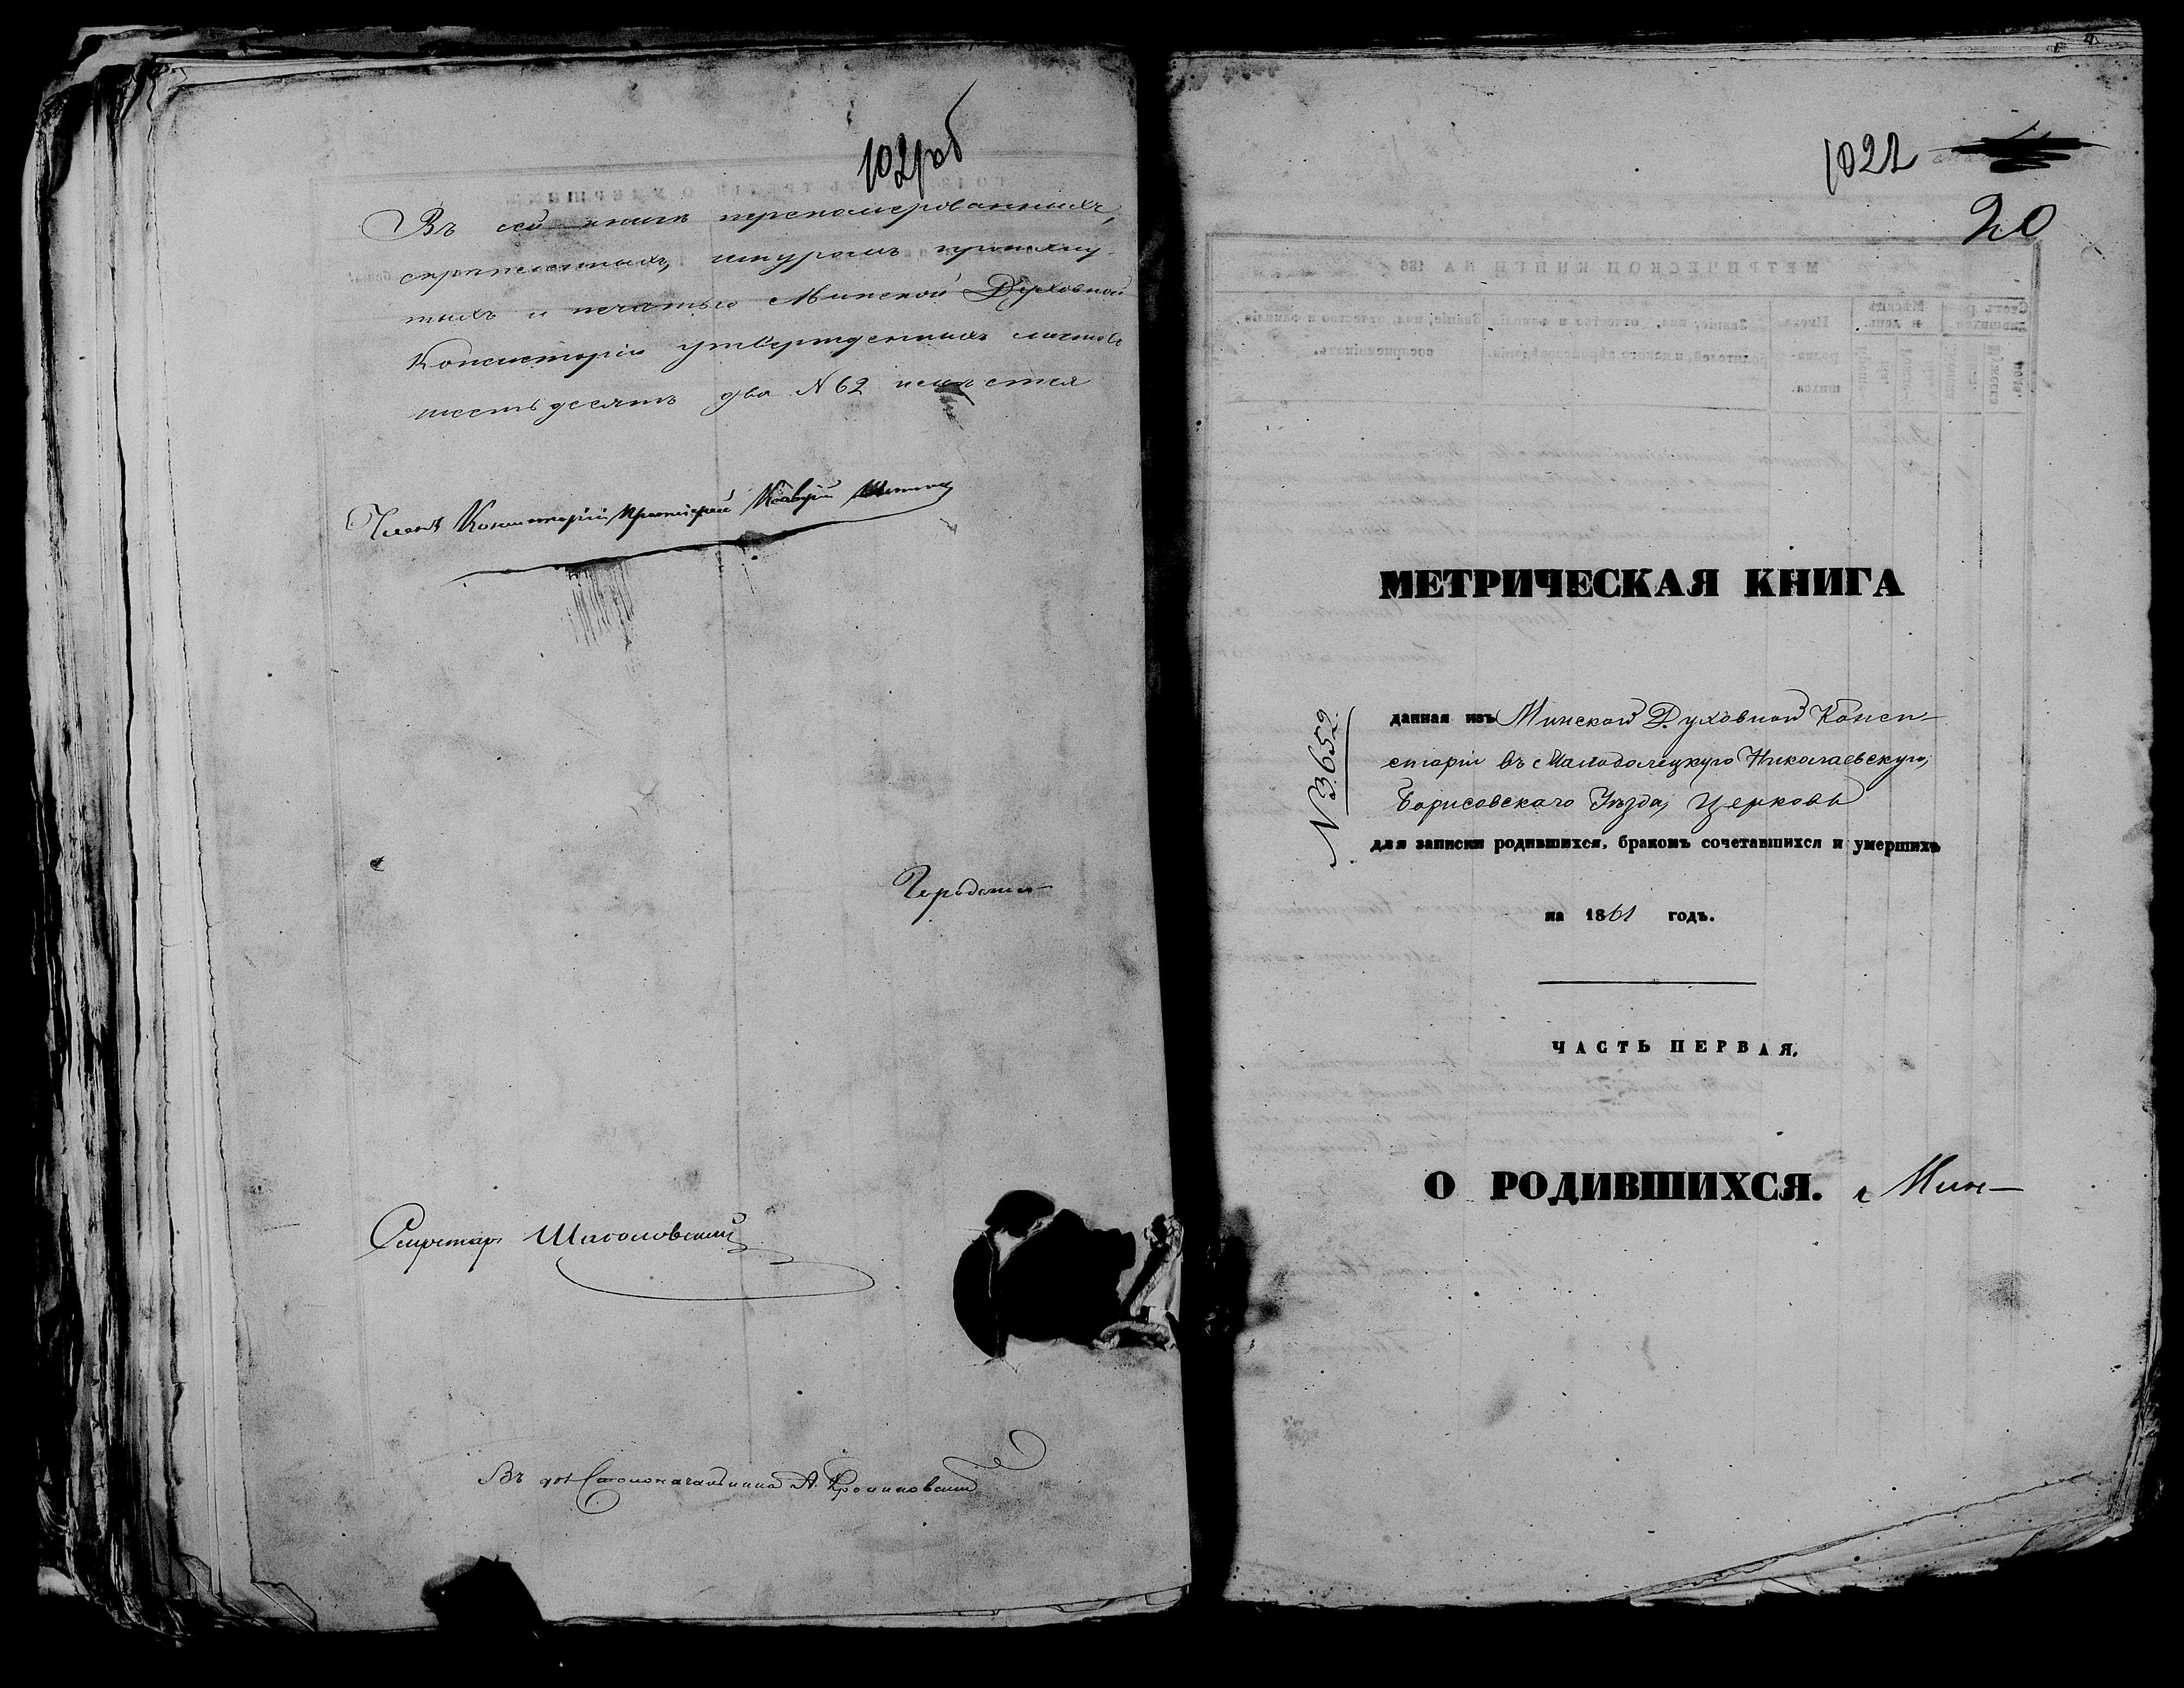 102 об
Въ сей книгѣ перенумерованныхъ,
скрѣпленныхъ, шнуромъ притяну-
тыхъ и печатью Минской Духовной
Консисторіи утвержденныхъ листовъ
шестьдесятъ два N 62 имѣется
Членъ Консисторіи Протоіерей
Секретарь
Въ дол Столоначальника А.
20
МЕТРИЧЕСКАЯ КНИГА
N 3652
данная изъ Минской Духовной Конси-
сторіи въ Малодолецкую Николаевскую,
Борисовскаго Уѣзда, Церковь
для записки родившихся, бракомъ сочетавшихся и умершихъ
на 1861 годъ.
ЧАСТЬ ПЕРВАЯ.
О РОДИВШИХСЯ.